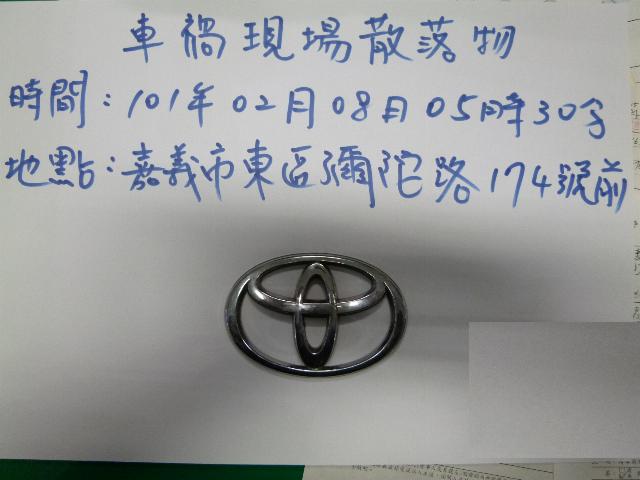 車禍現場散落物
時間：101年02月08日05時30分
地點：嘉義市東區彌陀路174號前